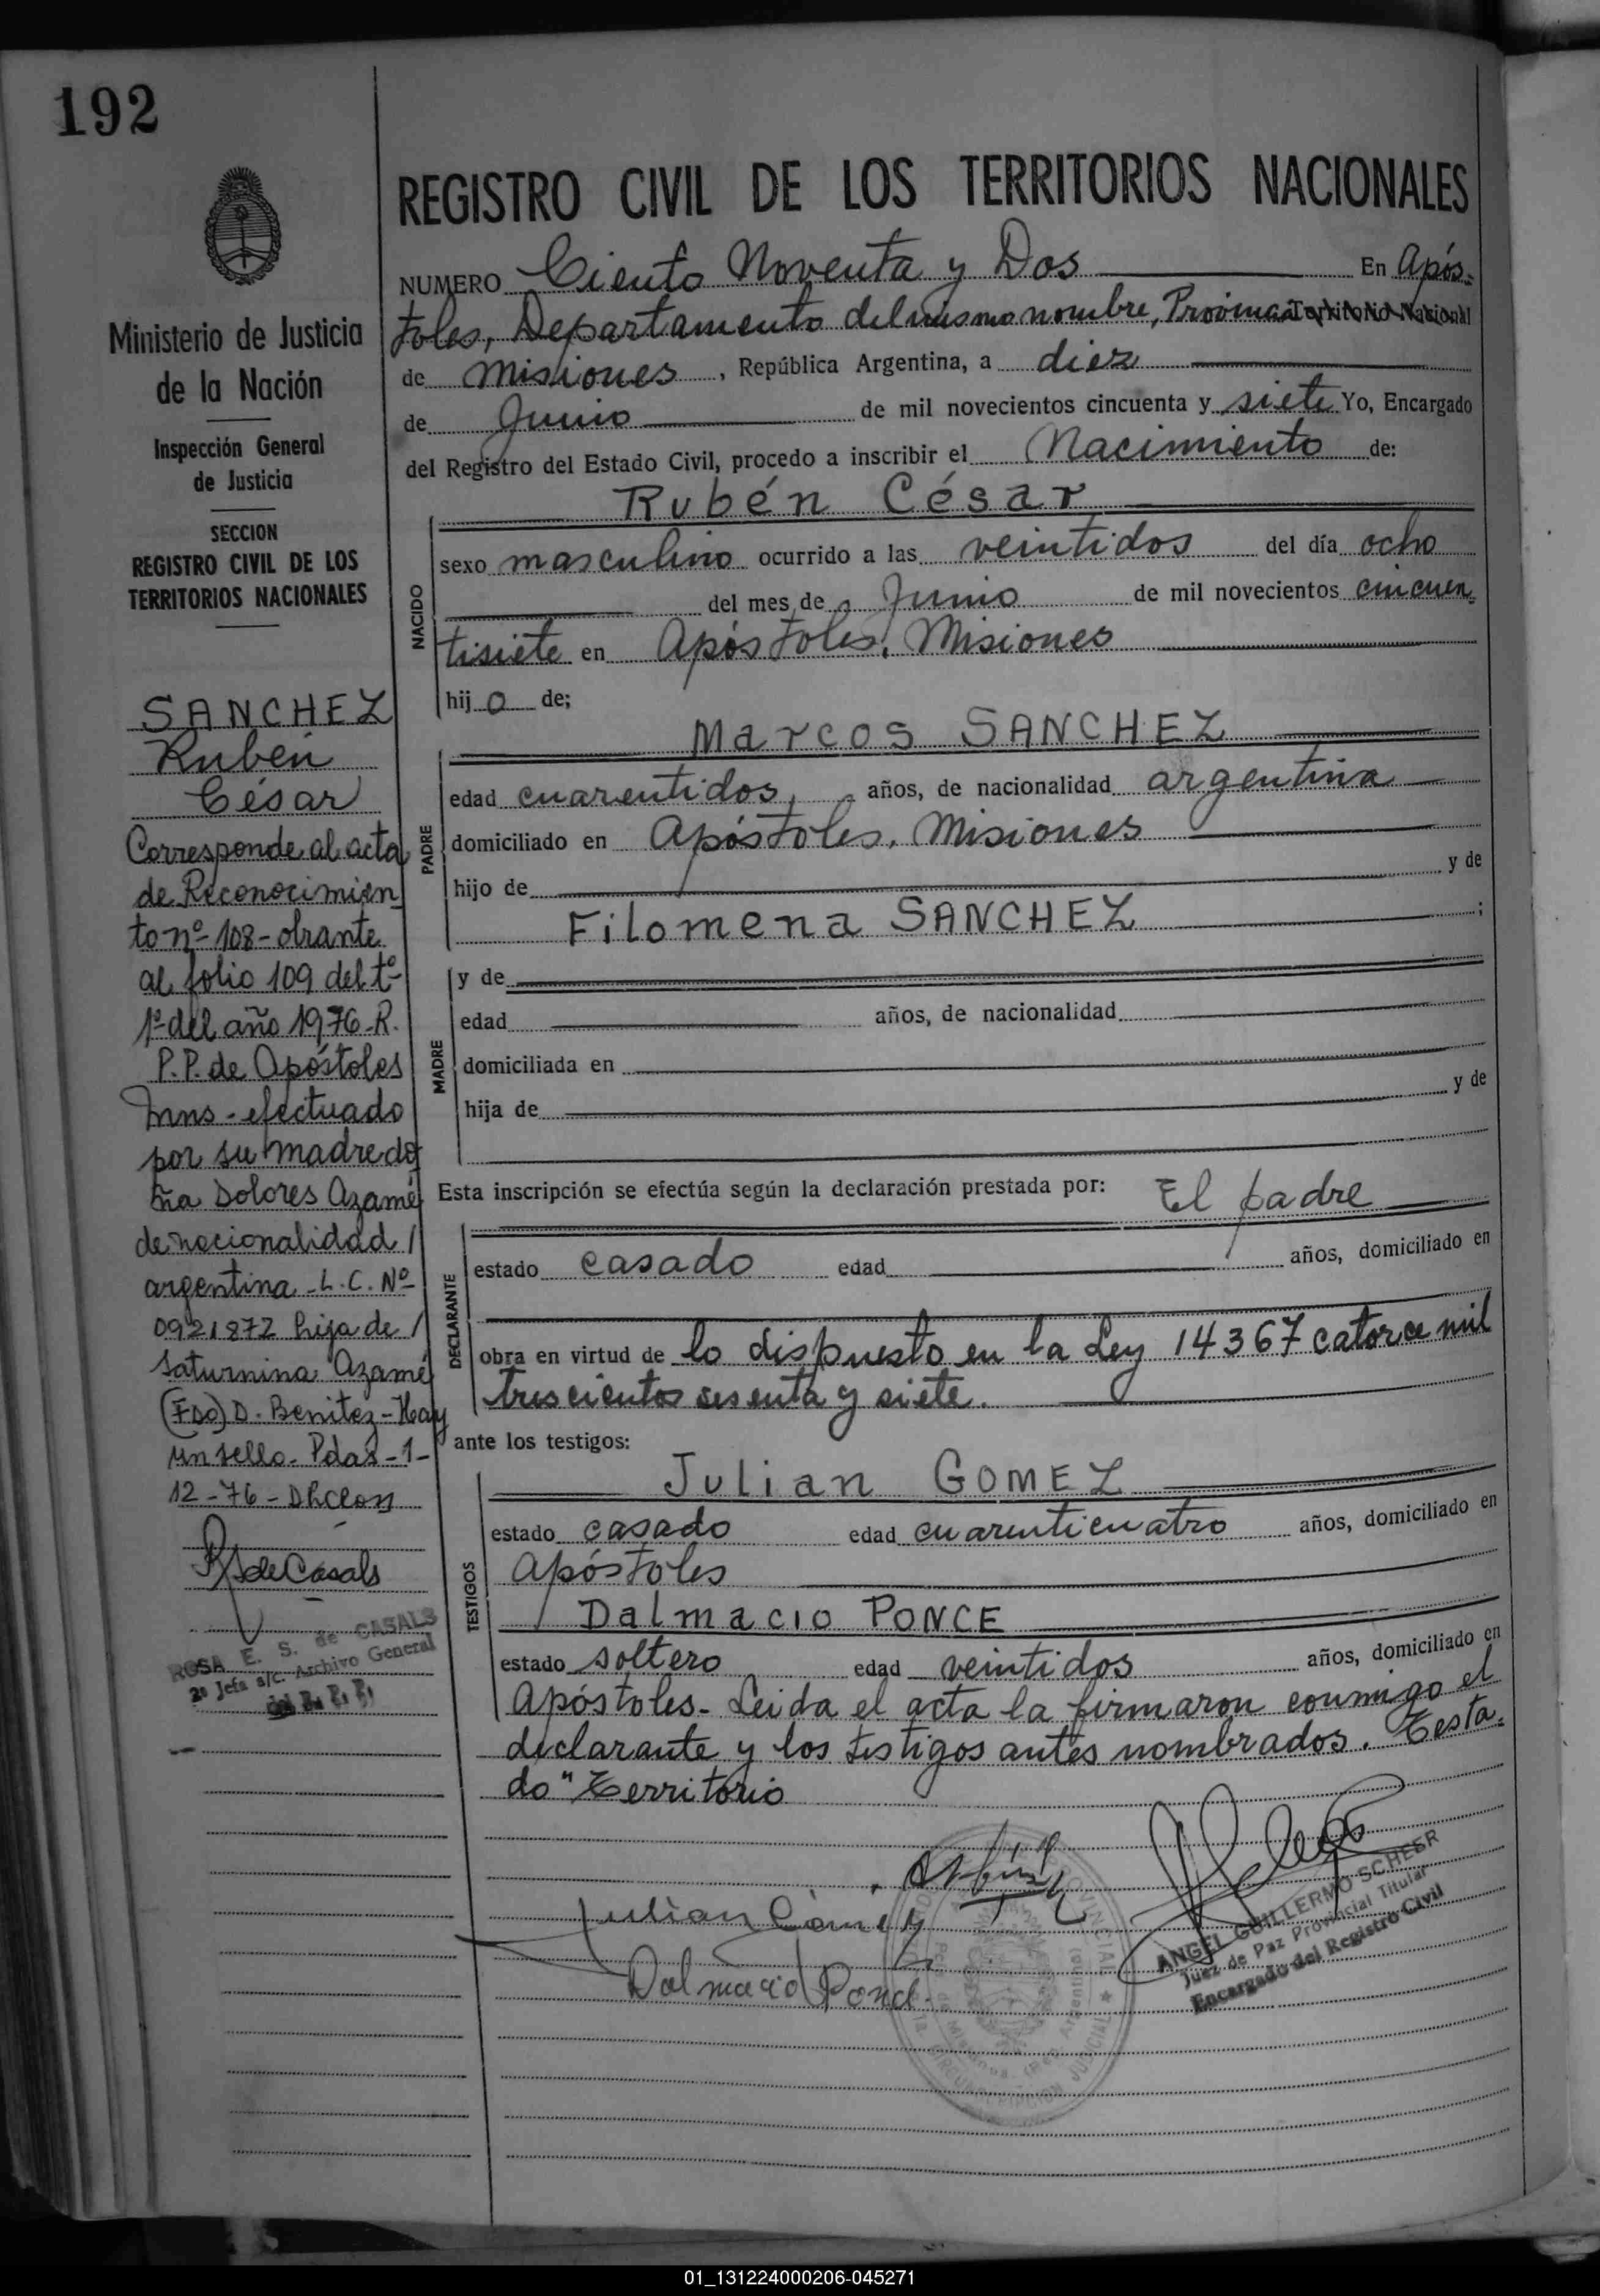 192
Ministerio de Justicia
de la Nación
Inspección General
de Justicia
SECCION
REGISTRO CIVIL DE LOS
TERRITORIOS NACIONALES
SANCHEZ
Rubén
César
Corresponde al acta
de Reconocimien
to nº 108 - obrante
al folio 109 del tº
1º del año 1976 - R.
P.P. de Apóstoles
Mns - efectuado
por su madre do
ña Dolores Azamé
de nacionalidad /
argentina - L.C. Nº
0921872 hija de /
Saturnina Azamé
(Fdo) D. Benitez - Hay
un sello - Pdas - 1 -
12 - 76 - DRCLOS
de Casals
ROSA E. S. de CASALS
2º Jefa a/c. Archivo General
del R. P. P.
REGISTRO CIVIL DE LOS TERRITORIOS NACIONALES
NUMERO Ciento Noventa y Dos En Após-
toles, Departamento del mismo nombre, Provincia Territorio Nacional
de Misiones, República Argentina, a diez
de Junio de mil novecientos cincuenta y siete Yo, Encargado
del Registro del Estado Civil, procedo a inscribir el Nacimiento de:
NACIDO
Rubén César
sexo masculino ocurrido a las veintidos del día ocho
del mes de Junio de mil novecientos cincuen-
tisiete en Apóstoles, Misiones
hij o de;
PADRE
Marcos SANCHEZ
edad cuarentidos, años, de nacionalidad argentina
domiciliado en Apóstoles, Misiones
hijo de y de
Filomena SANCHEZ ;
MADRE
y de
edad años, de nacionalidad
domiciliada en
hija de y de
Esta inscripción se efectúa según la declaración prestada por: El padre
DECLARANTE
estado casado edad años, domiciliado en
obra en virtud de lo dispuesto en la Ley 14367 catorce mil
trescientos sesenta y siete.
ante los testigos:
TESTIGOS
Julian GOMEZ
estado casado edad cuarenticuatro años, domiciliado en
Apóstoles
Dalmacio PONCE
estado soltero edad veintidos años, domiciliado en
Apóstoles - Leida el acta la firmaron conmigo el
declarante y los testigos antes nombrados. Testa-
do "Territorio
Julian Gomez
Dalmacio Ponce
ANGEL GUILLERMO SCHEER
Juez de Paz Provincial Titular
Encargado del Registro Civil
01_131224000206-045271